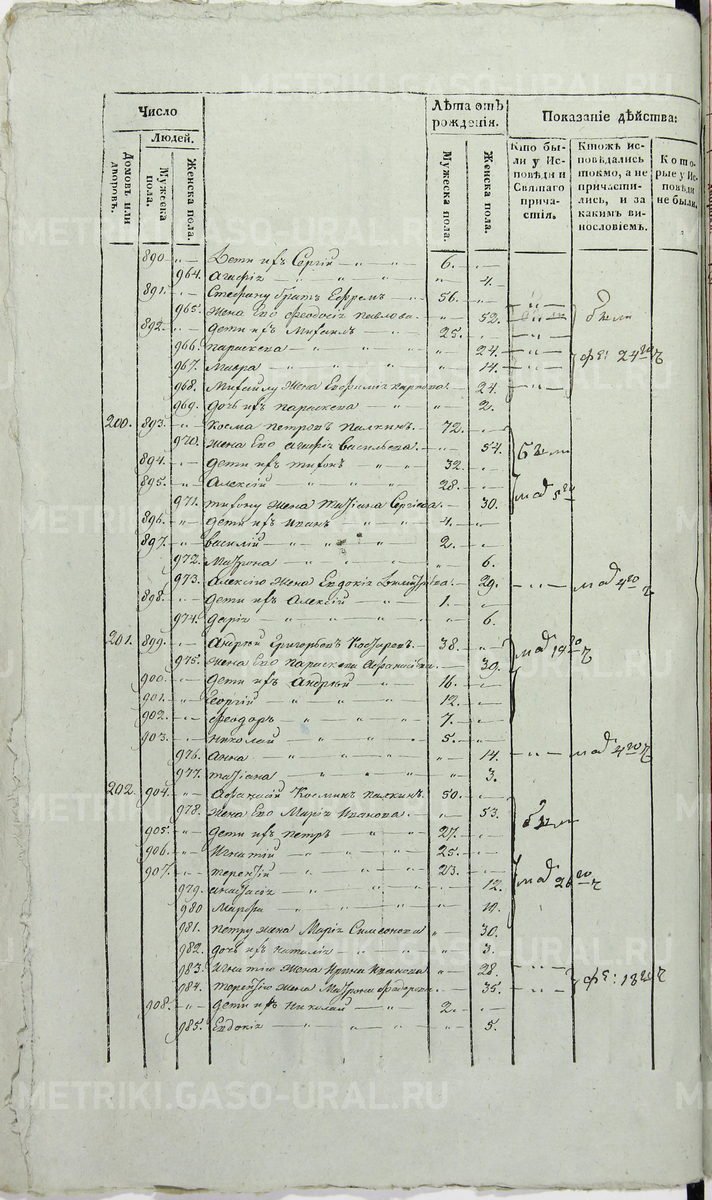 METRIKI.GASO-URAL.RU
Число
Людей.
Домовъ или дворовъ.
Мужеска пола.
Женска пола.
Лѣта отъ рожденія.
Мужеска пола.
Женска пола.
Показаніе дѣйства:
Кто были у Исповѣди и Святаго причастія.
Ктожъ исповѣдались токмо, а не причастились, и за какимъ винословіемъ.
Которые у Исповѣди не были.
890 „ Дети ихъ Сергий — „ — „ 6. „
964. Агафия „ „ „ „ 4.
891. „ Стефану братъ Ефремъ — „ 56. „
965. Жена Его Феодосия Павлова. „ 52. „ были
892. „ Дети ихъ Михаилъ — „ 25. „
966. Параскева „ „ „ 24. „ фе: 24
967. Мавра „ „ „ „ 14. „
968. Михайлу жена Евфимия Карпова. „ 24. „
969. Дочь ихъ Параскева — „ „ 2.
200. 893. „ Косма Петровъ Палкинъ. — 72. „
970. Жена Его Агафия Васильева. „ 54. были
894. „ Дети ихъ Тифонъ „ „ 32. „
895. „ Алексий „ „ „ 28. „ маф 5
971. Тифону жена Татиана Сергиева. — 30.
896. „ Дети ихъ Иванъ „ „ 4. „
897. „ Василий — „ „ 2. „
972. Матрона — „ „ „ 6.
973. Алексию жена Евдокия Димитриева. „ 29. „ 4
898. „ Дети ихъ Алексий — „ 1. „
974. Дария „ „ „ „ 6.
201. 899. „ Андрей Григорьевъ — 38. „ 14
975. Жена Его Параскева Афанасиева. „ 39.
900. „ Дети ихъ Андрей „ „ 16. „
901. „ Георгий — „ „ „ 12. „
902. „ Феодоръ „ „ „ 7. „
903. „ Николай „ „ „ 5. „
976. Анна „ „ „ „ 14. „ 4
977. Татиана „ „ „ „ 3.
202. 904. „ Афанасий Косминъ Палкинъ. 50. „
978. Жена Его Мария Иванова. „ 53. были
905. „ Дети ихъ Петръ „ „ 27. „
906. „ Игнатий — „ „ „ 25. „
907. „ Терентий „ „ „ 23. „
979. Анастасия „ „ „ „ 12. 26
980 Марфа „ „ „ „ 10.
981. Петру жена Мария Симеонова „ 30.
982. Дочь ихъ Наталия — „ „ 3.
983. Игнатию жена Ирина Иванова „ 28. „
984. Терентию жена Матрона Федорова. „ 35. „ фе: 18
908. „ Дети ихъ Николай — „ 2. „
985. Евдокия — „ „ „ 5.
METRIKI.GASO-URAL.RU